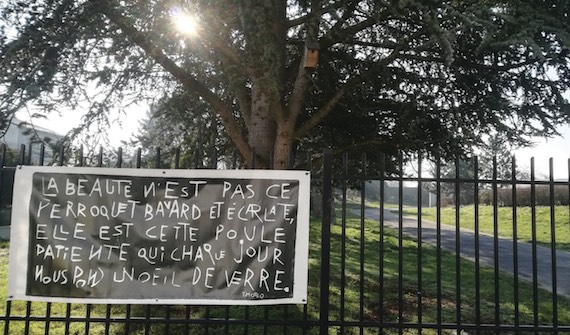 LA BEAUTÉ N'EST PAS CE
PERROQUET BAVARD ET ÉCARLATE,
ELLE EST CETTE POULE
PATIENTE QUI CHAQUE JOUR
NOUS POND UN OEIL DE VERRE.